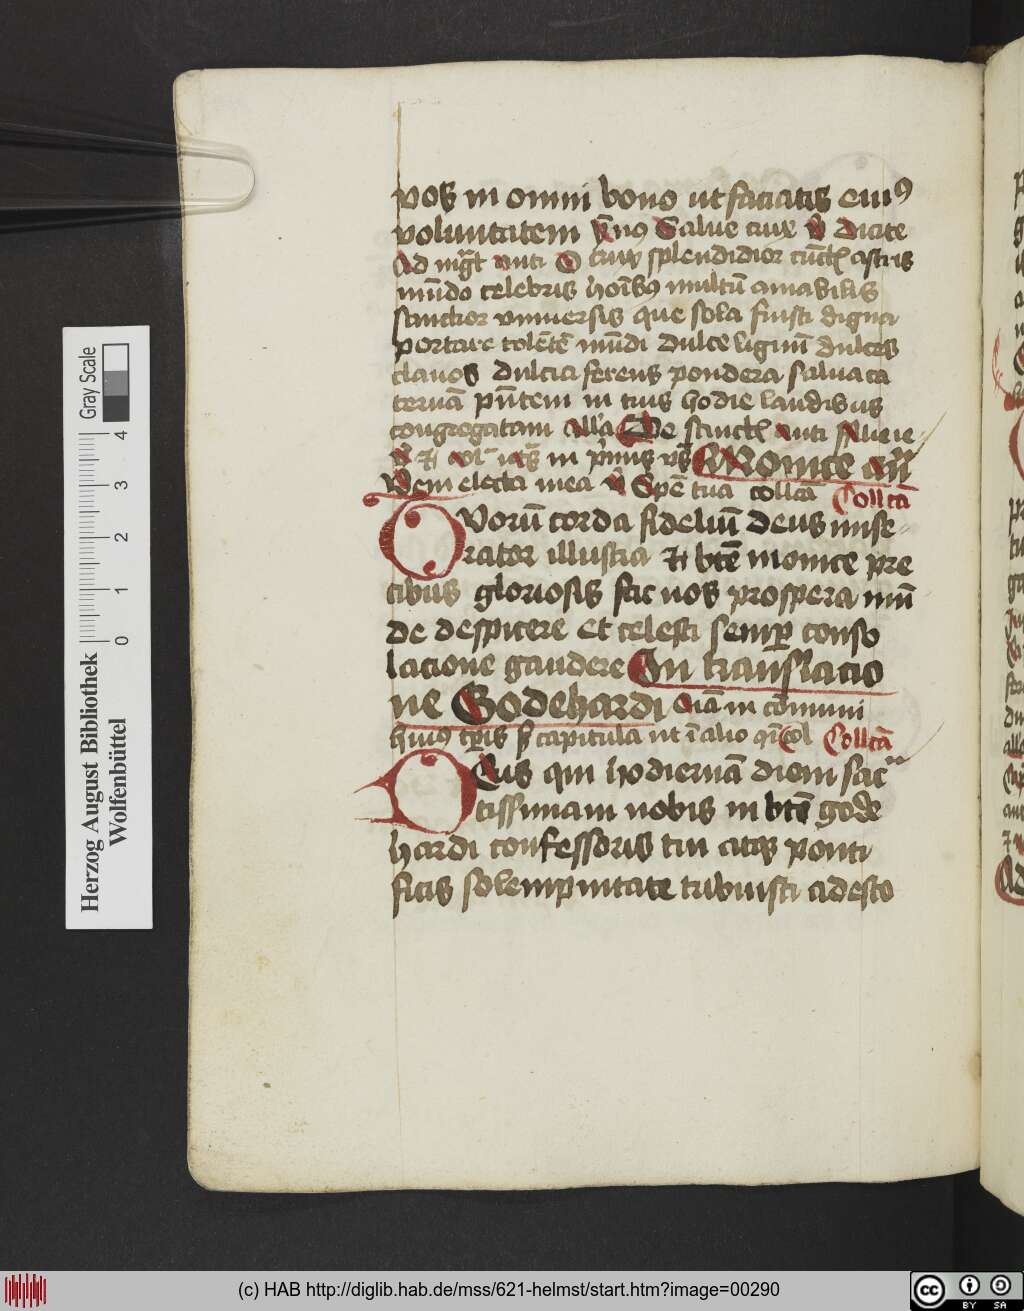 vos in omni bono ut faciatis eiuꝰ
voluntatem ẏmnꝰ Salue crux v̄ Dicite
Ad mgt̄ anti O crux splendidior cūctꝭ astris
mūdo celebris hoībꝰ multū amabilis
sanctior vniuersis que sola fuisti digna
portare tolētū mūdi dulce lignū dulces
clauos dulcia ferens pondera salua ca
teruā pn̄tem in tuis hodie laudibus
congregatam all'a De sanctꝭ anti
in pͥmis vs̄ Monice an̄
Veni electa mea v̄ Spē tua collca Collcā
Uorū corda fideliū deus mise-
rator illustra ⁊ btē monice pre
cibus gloriosis fac nos prospera mū
de despicere et celesti semꝑ conso
lacione gaudere In translacio
ne Godehardi in cōmuni
capitula ut ī alio Collcā
Eus qui hodiernā diem sac̄
tissimam nobis in btī gode
hardi confessoris tui atqꝫ ponti
ficis solempnitate tribuisti adesto
Herzog August Bibliothek
Wolfenbüttel
0 1 2 3 4
Gray Scale
(c) HAB http://diglib.hab.de/mss/621-helmst/start.htm?image=00290
cc BY SA